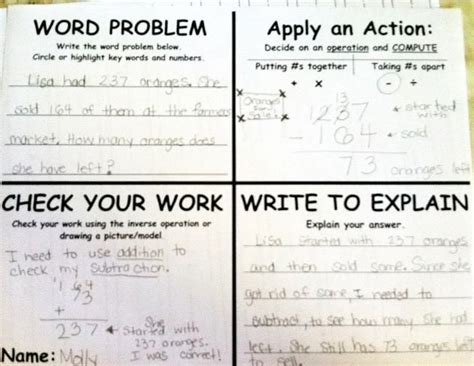 WORD PROBLEM
Write the word problem below.
Circle or highlight key words and numbers.
Lisa had 237 oranges. She
sold 164 of them at the farmers
market. How many oranges does
she have left?
Apply an Action:
Decide on an operation and COMPUTE
Putting #s together
Taking #s apart
+ ×
- ÷
oranges
13
1237 ← started with
- 164 ← sold
73 oranges left
CHECK YOUR WORK
Check your work using the inverse operation or
drawing a picture/model.
I need to use addition to
check my subtraction.
164
73
+
237 ← She started with
237 oranges.
I was correct!
Name: Molly
WRITE TO EXPLAIN
Explain your answer.
Lisa started with 237 oranges
and then sold some. Since she
got rid of some I needed to
subtract, to see how many she had
left. She still has 73 oranges left
to sell.